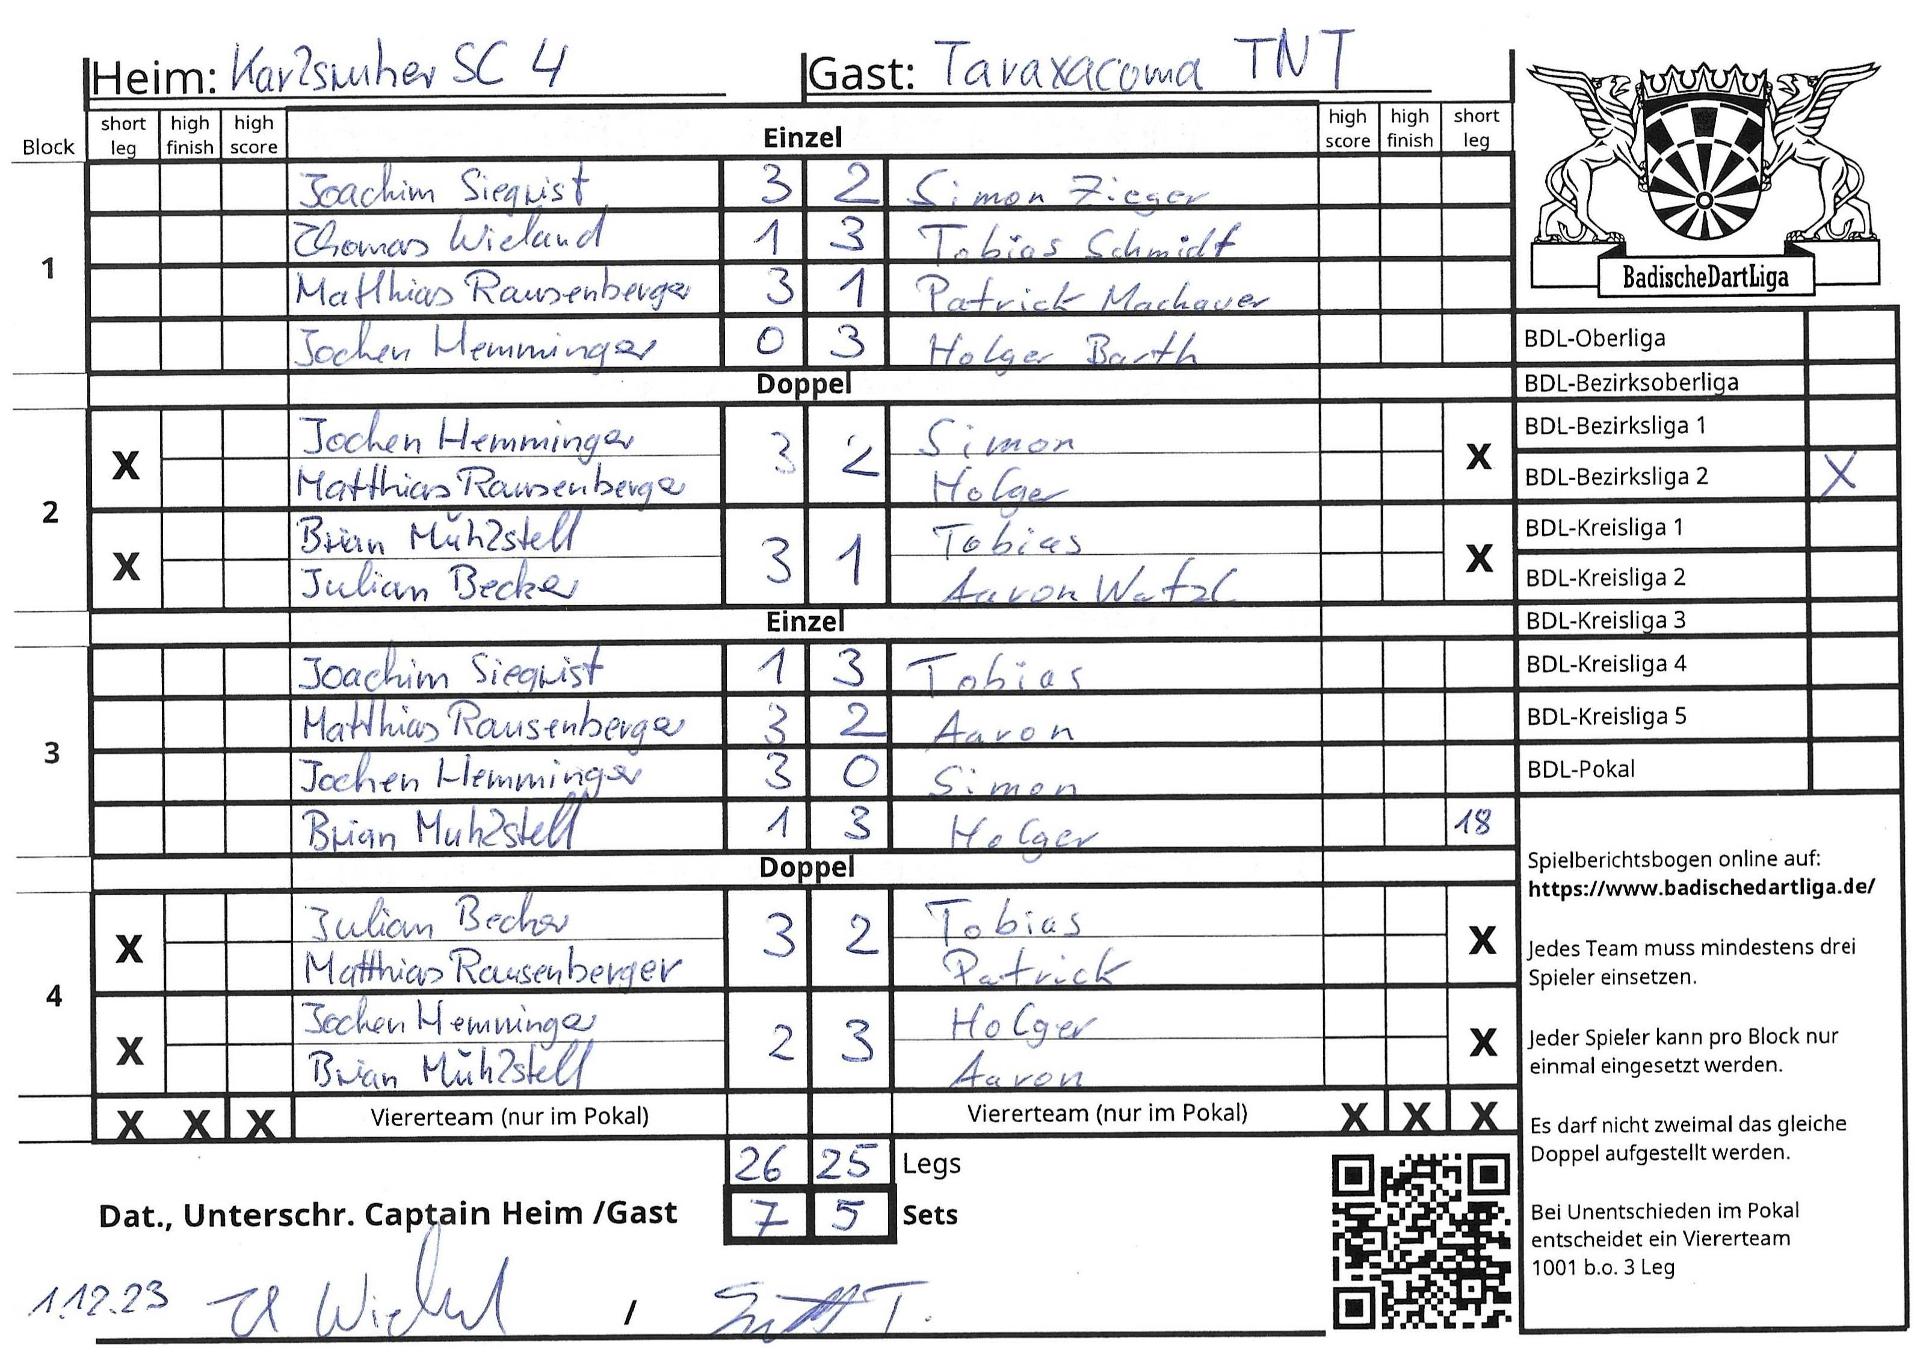 Heim: Karlsruher SC 4 Gast: Taraxacoma TNT
Block short leg high finish high score Einzel high score high finish short leg
1
Joachim Siegrist 3 2 Simon Zieger
Thomas Wieland 1 3 Tobias Schmidt
Matthias Rausenberger 3 1 Patrick Machauer
Jochen Hemminger 0 3 Holger Barth
Doppel
2
X Jochen Hemminger 3 2 Simon X
Matthias Rausenberger Holger
X Brian Mühlstell 3 1 Tobias X
Julian Becker Aaron Watzl
Einzel
3
Joachim Siegrist 1 3 Tobias
Matthias Rausenberger 3 2 Aaron
Jochen Hemminger 3 0 Simon
Brian Muhlstell 1 3 Holger 18
Doppel
4
X Julian Becker 3 2 Tobias X
Matthias Rausenberger Patrick
X Jochen Hemminger 2 3 Holger X
Brian Mühlstell Aaron
X X X Viererteam (nur im Pokal) Viererteam (nur im Pokal) X X X
26 25 Legs
Dat., Unterschr. Captain Heim /Gast 7 5 Sets
1.12.23 /
BadischeDartLiga
BDL-Oberliga
BDL-Bezirksoberliga
BDL-Bezirksliga 1
BDL-Bezirksliga 2 X
BDL-Kreisliga 1
BDL-Kreisliga 2
BDL-Kreisliga 3
BDL-Kreisliga 4
BDL-Kreisliga 5
BDL-Pokal
Spielberichtsbogen online auf:
https://www.badischedartliga.de/
Jedes Team muss mindestens drei
Spieler einsetzen.
Jeder Spieler kann pro Block nur
einmal eingesetzt werden.
Es darf nicht zweimal das gleiche
Doppel aufgestellt werden.
Bei Unentschieden im Pokal
entscheidet ein Viererteam
1001 b.o. 3 Leg